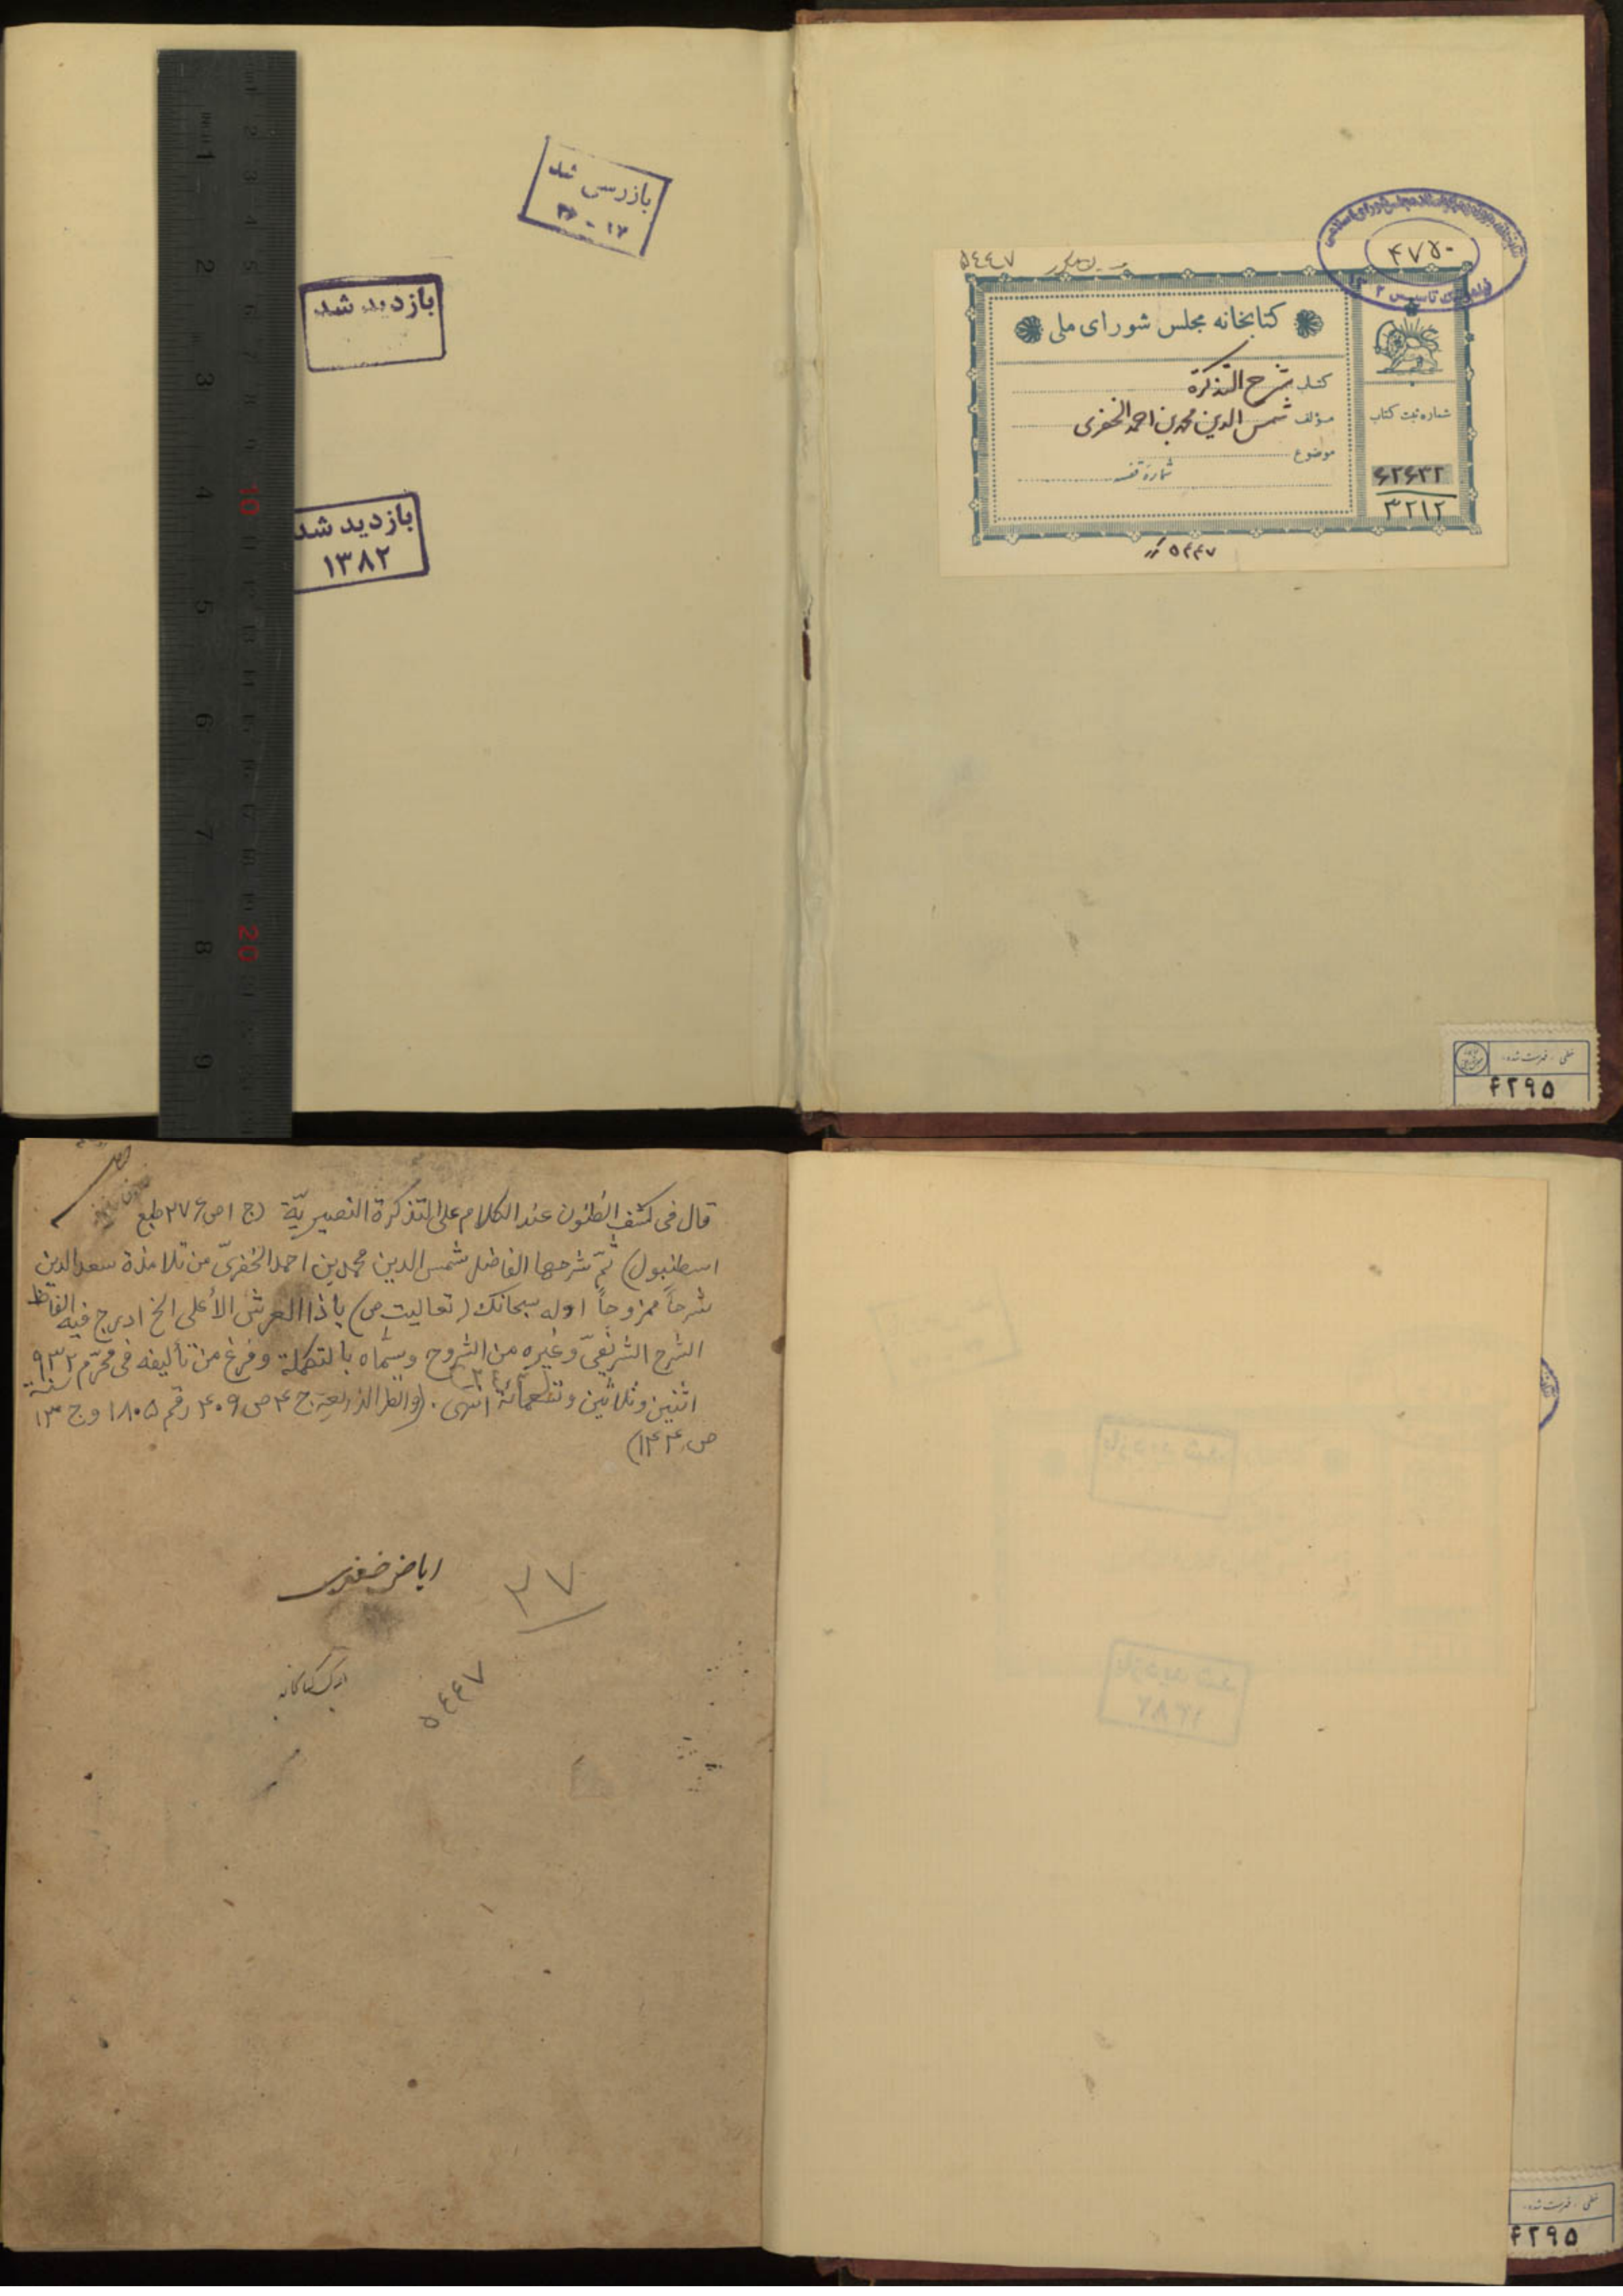 بازرسی شد
۳۶ - ۱۷
بازدید شد
بازدید شد
۱۳۸۲
۴۷۵۰
۵٤٤۷
کتابخانه مجلس شورای ملی
کتاب شرح التذکرة
مؤلف شمس الدین محمد بن احمد الخفری
موضوع
شماره قفسه
شماره ثبت کتاب
۶۲۶۳۲
۳۲۱۲
۵۴۴۷
خطی - فهرست شده
۴۲۹۵
قال فی کشف الظنون عند الکلام علی التذکرة النصیریّة (ج ۱ ص ۲۷۶ طبع
اسطنبول) ثمّ شرحها الفاضل شمس الدین محمد بن احمد الخفریّ من تلامذة سعد الدین
شرحاً ممزوجاً اوله سبحانک (تعالیت ص) یا ذا العرش الأعلی الخ ادرج فیه الفاظ
الشرح الشریفیّ وغیره من الشروح وسمّاه بالتکملة وفرغ من تألیفه فی محرّم ۹۳۲ سنة
اثنین وثلاثین وتسعمائة انتهی. (وانظر الذریعة ج ۴ ص ۴۰۹ رقم ۱۸۰۵ وج ۱۳
ص ۱۴۴)
۳۷
۵٤٤۷
بازدید شد
بازدید شد
۱۳۸۲
خطی - فهرست شده
۴۲۹۵